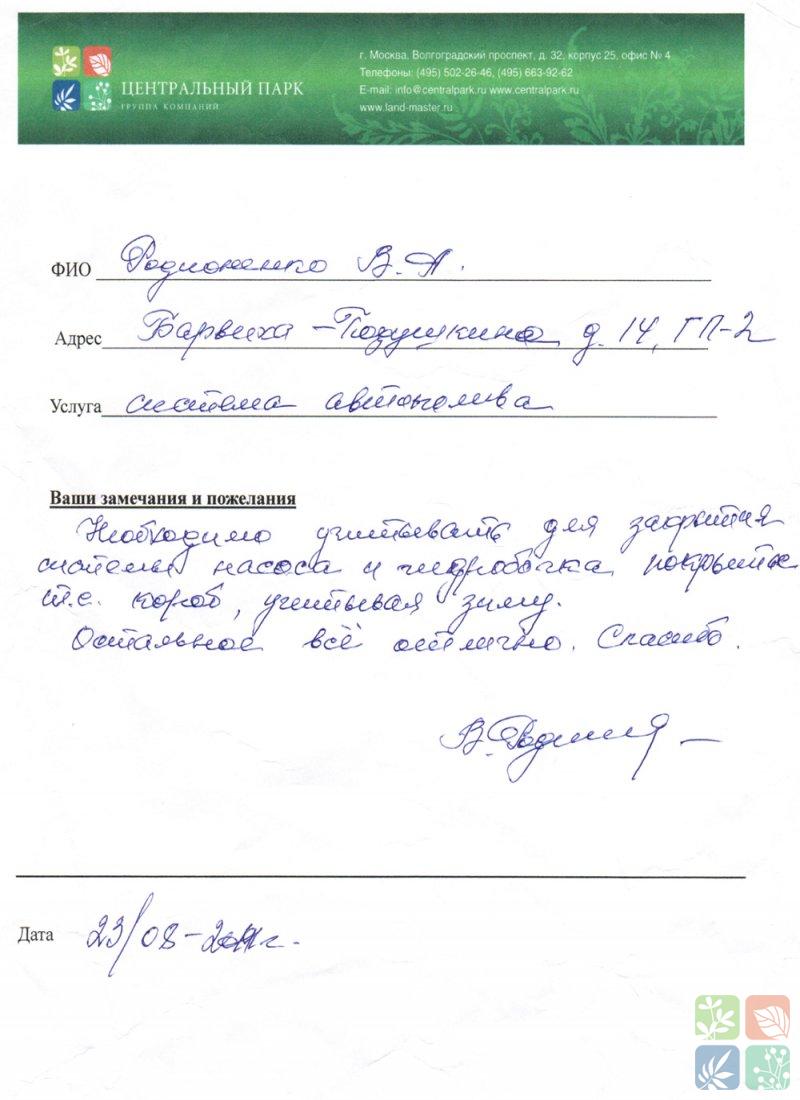 ЦЕНТРАЛЬНЫЙ ПАРК
ГРУППА КОМПАНИЙ
г. Москва, Волгоградский проспект, д. 32, корпус 25, офис № 4
Телефоны: (495) 502-26-46, (495) 663-92-62
E-mail: info@centralpark.ru www.centralpark.ru
www.land-master.ru
ФИО Родионенко В. А.
Адрес Барвиха - Подушкино д. 14, ГП-2
Услуга система автополива
Ваши замечания и пожелания
Необходимо учитывать для закрытия
системы насоса и гидробочка покрытие
т.е. короб, учитывая зиму.
Остальное всё отлично. Спасибо.
Дата 23/08-2011г.